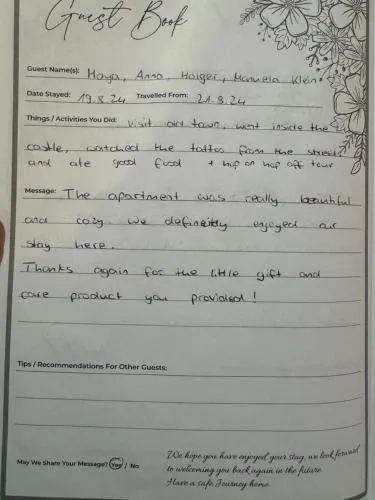 Guest Book
Guest Name(s): Maya, Anna, Holger, Manuela Klein
Date Stayed: 19.8.24 Travelled From: 21.8.24
Things / Activities You Did: visit old town, went inside the
castle, watched the tattoo from the streets
and ate good food + hop on hop off tour
Message: The apartment was really beautiful
and cozy we definetly enjoyed our
stay here.
Thanks again for the little gift and
care product you provided!
Tips / Recommendations For Other Guests:
May We Share Your Message? Yes / No
We hope you have enjoyed your stay, we look forward
to welcoming you back again in the future.
Have a safe Journey home.